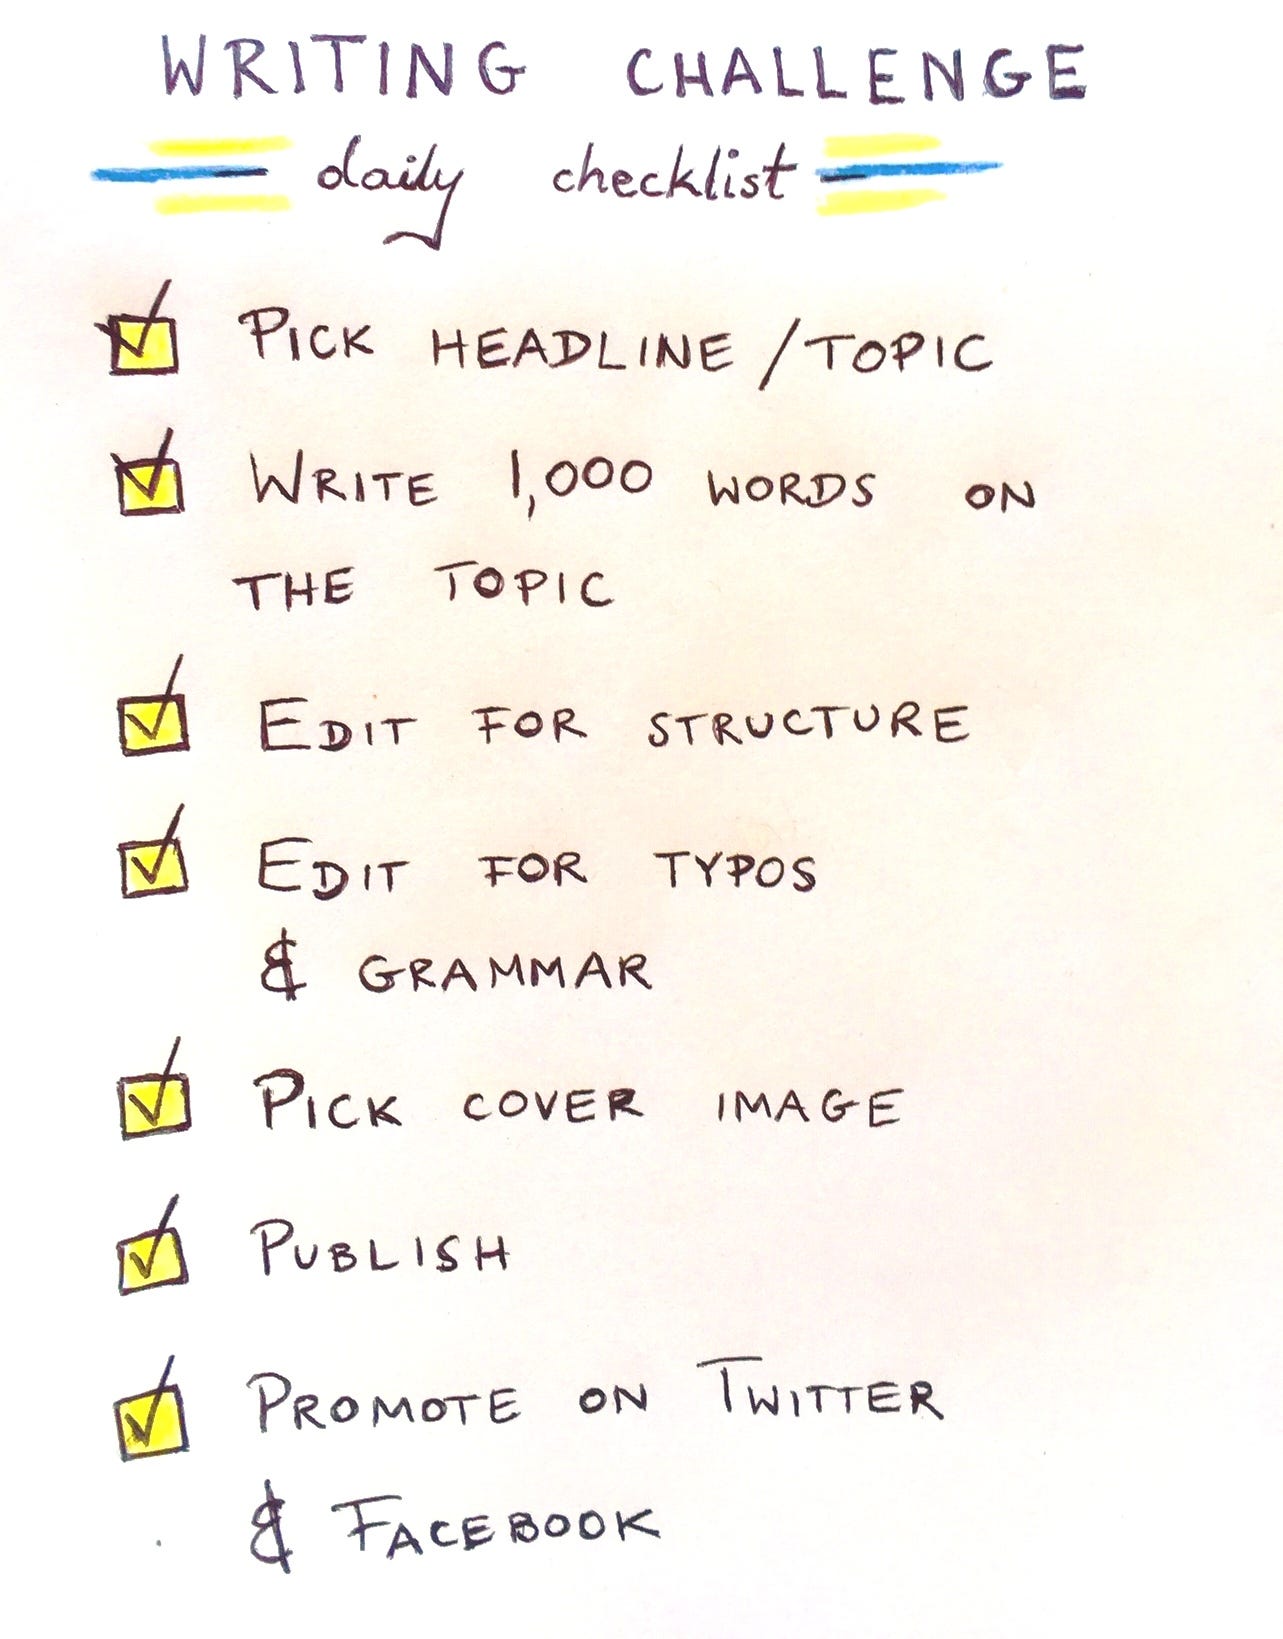 WRITING CHALLENGE
daily checklist
PICK HEADLINE / TOPIC
WRITE 1,000 WORDS ON
THE TOPIC
EDIT FOR STRUCTURE
EDIT FOR TYPOS
& GRAMMAR
PICK COVER IMAGE
PUBLISH
PROMOTE ON TWITTER
& FACEBOOK